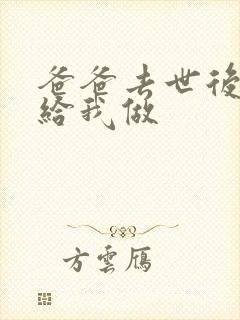 爸爸去世後
給我做
方雲鴈